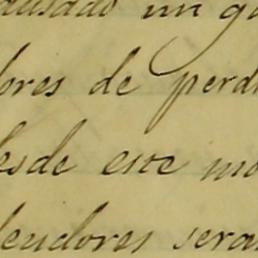 ausado un ga
ores de perd
esde este mo
deudores sera